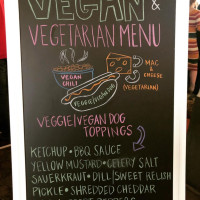 VEGAN &
VEGETARIAN MENU
VEGAN
CHILI
MAC
&
CHEESE
(VEGETARIAN)
VEGGIE/VEGAN
VEGGIE/VEGAN DOG
TOPPINGS
KETCHUP • BBQ SAUCE
YELLOW MUSTARD • CELERY SALT
SAUERKRAUT • DILL/SWEET RELISH
PICKLE • SHREDDED CHEDDAR